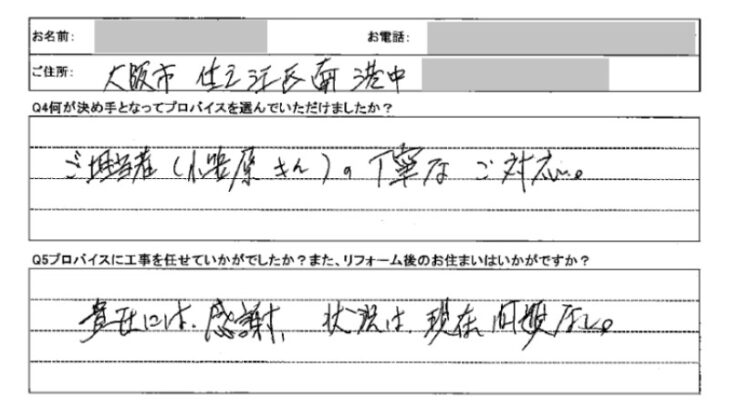 お名前: お電話:
ご住所: 大阪市 住之江区南港中
Q4何が決め手となってプロバイスを選んでいただけましたか?
ご担当者(小笠原さん)の丁寧なご対応。
Q5プロバイスに工事を任せていかがでしたか?また、リフォーム後のお住まいはいかがですか?
貴社には、感謝、状況は、現在、問題なし。